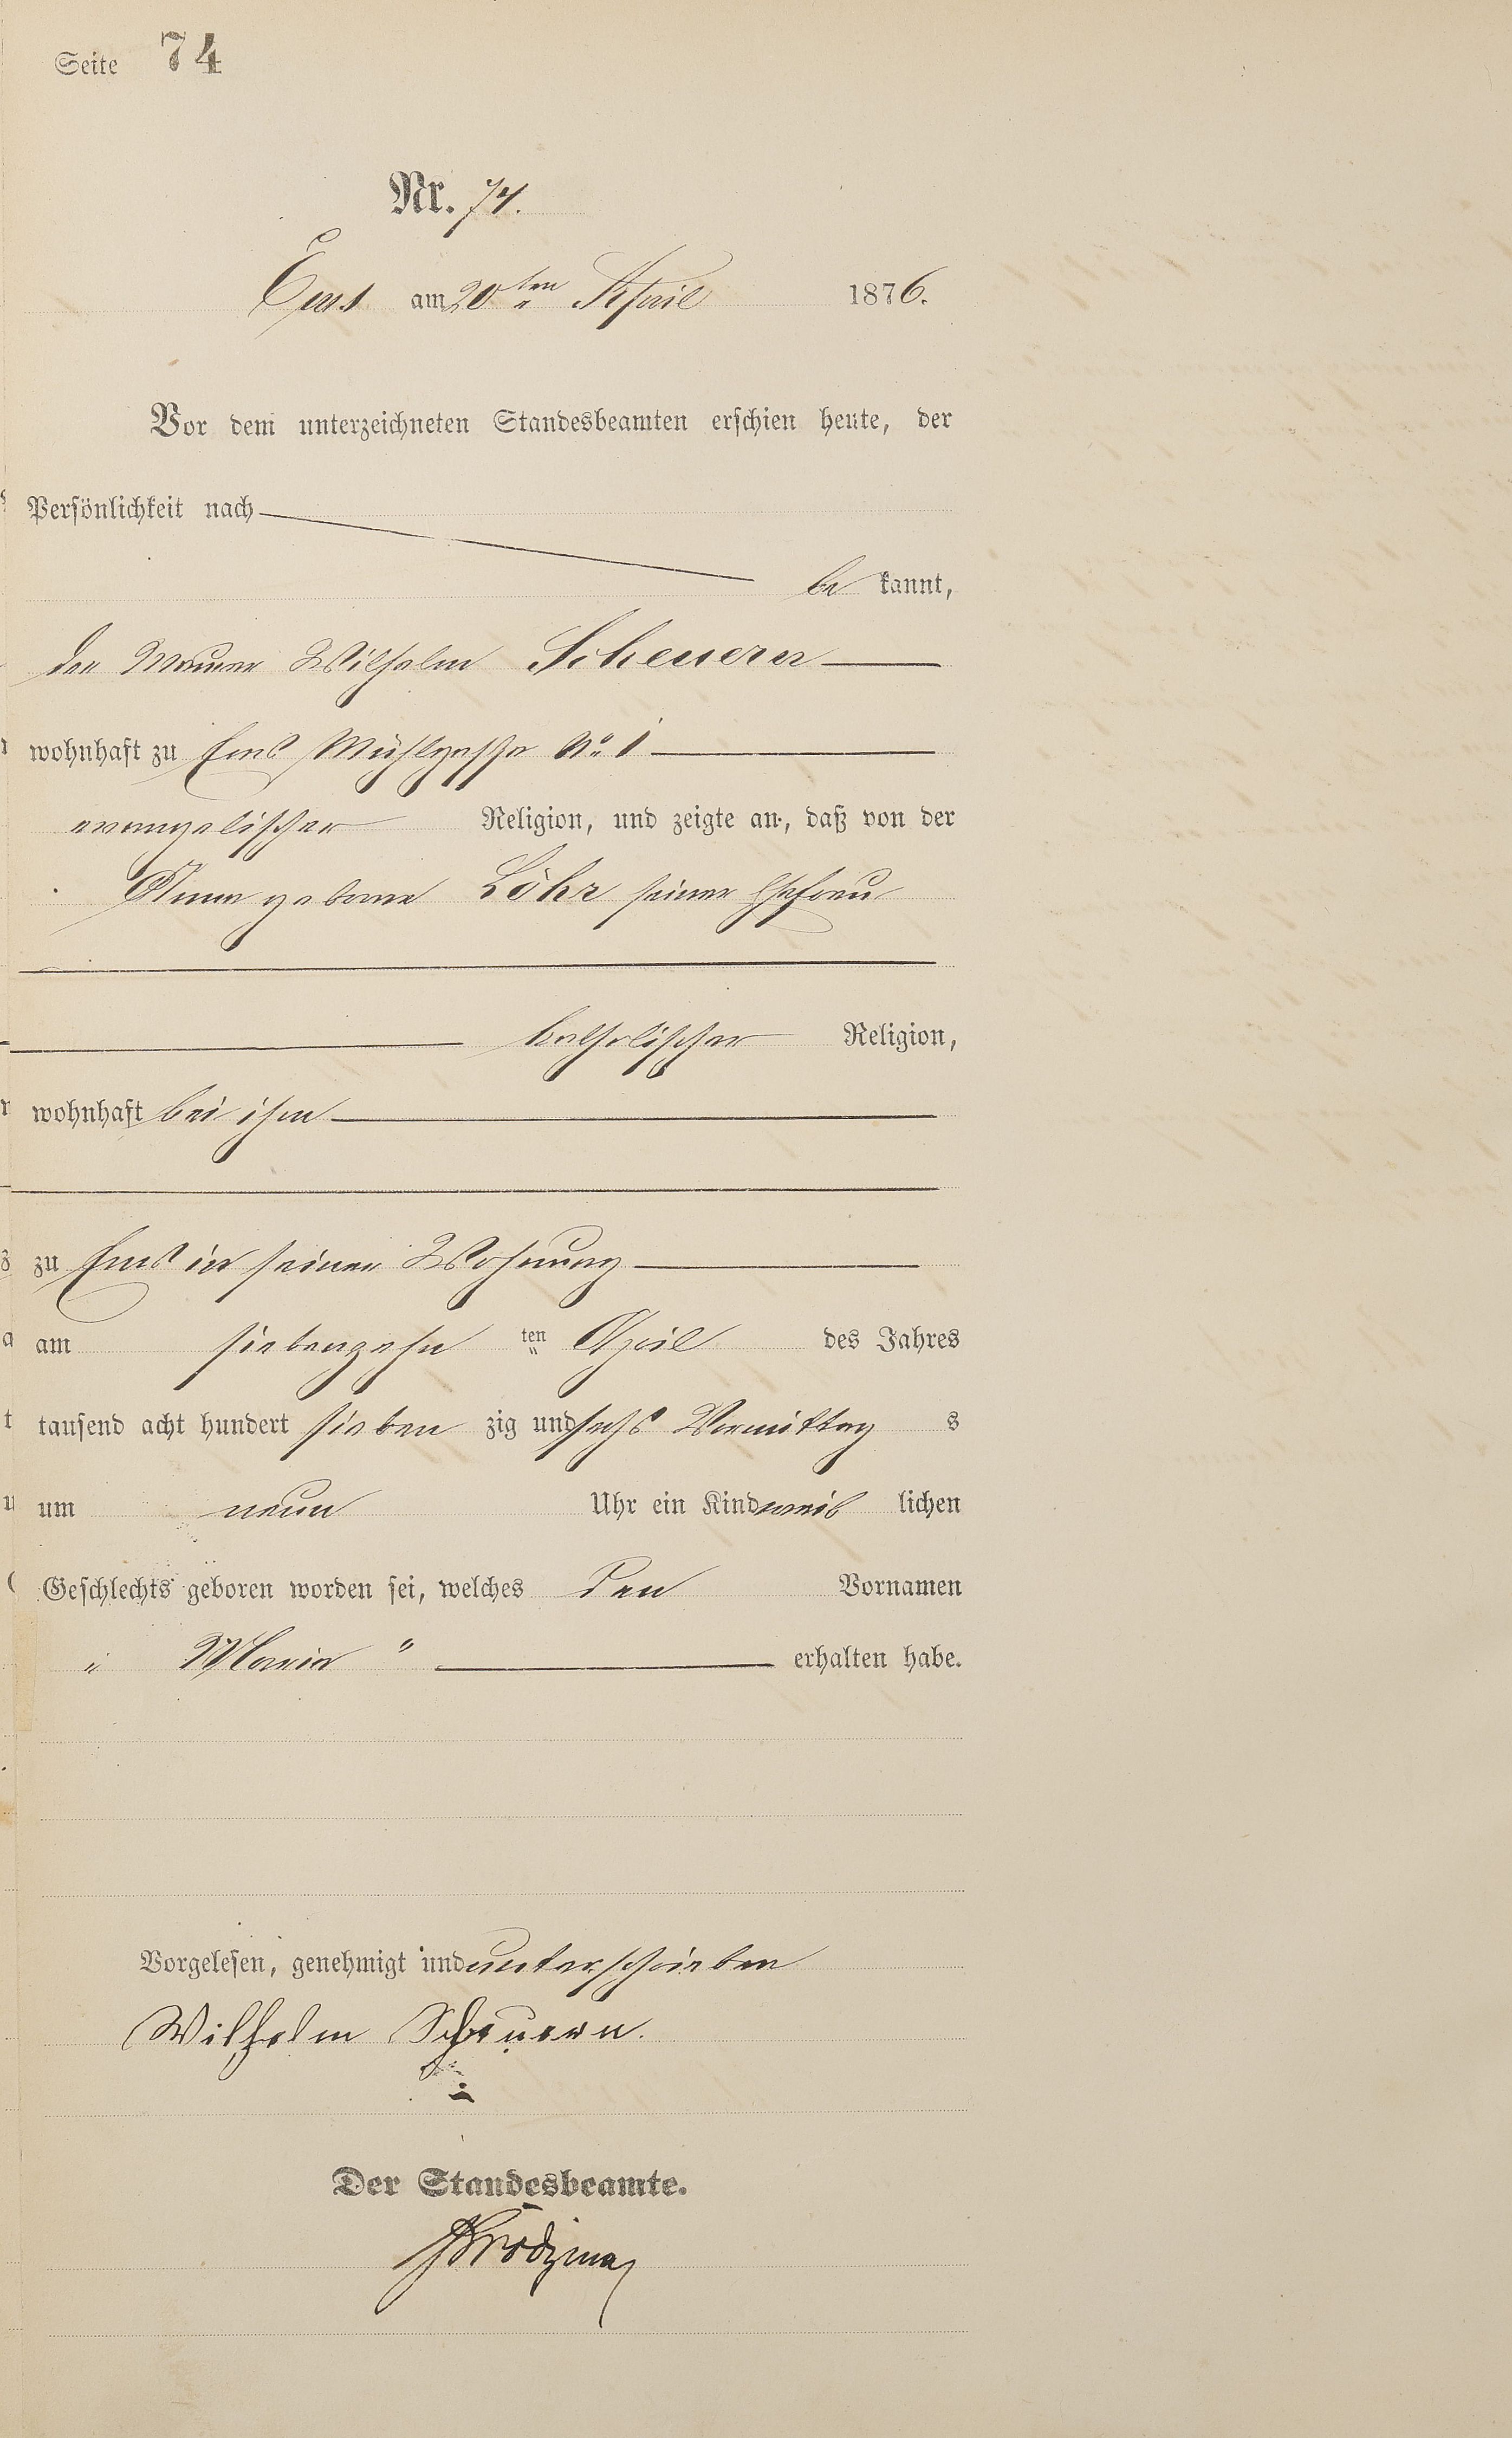 Seite 74
Nr. 74.
Ems am 20ten April 1876.
Vor dem unterzeichneten Standesbeamten erschien heute, der
Persönlichkeit nach
be kannt,
der Maurer Wilhelm Scheuern
wohnhaft zu Ems Mühlgasse No 1
evangelischer Religion, und zeigte an, daß von der
Anna geborne Löhr seiner Ehefrau
katholischer Religion,
wohnhaft bei ihm
zu Ems in seiner Wohnung
am siebenzehn ten April des Jahres
tausend acht hundert sieben zig und sechs Vormittag s
um neun Uhr ein Kind weib lichen
Geschlechts geboren worden sei, welches den Vornamen
" Maria " erhalten habe.
Vorgelesen, genehmigt und unterschrieben
Wilhelm Scheuern.
Der Standesbeamte.